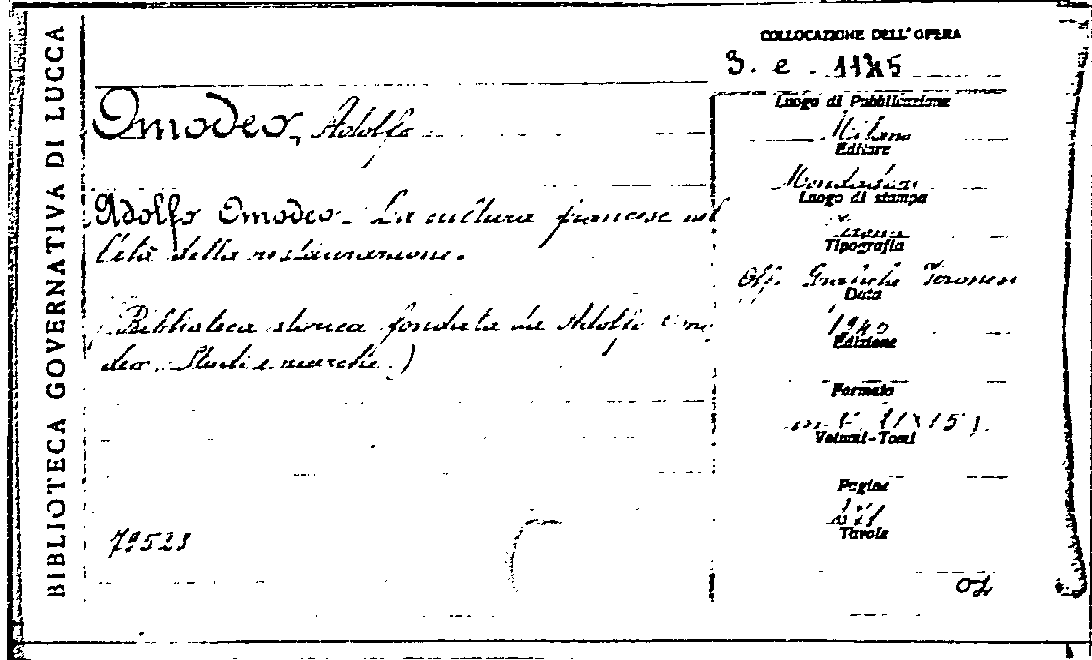 BIBLIOTECA GOVERNATIVA DI LUCCA
COLLOCAZIONE DELL'OPERA
3. e. 1185
Omodeo, Adolfo
Luogo di Pubblicazione
Milano
Editore
Mondadori
Luogo di stampa
Adolfo Omodeo - La cultura francese nel
l'età della restaurazione.
Tipografia
Off. Grafiche Veronesi
Data
1946
Edizione
(Biblioteca storica fondata da Adolfo Omo
deo. Studi e ricerche.)
Formato
Volumi-Tomi
Pagine
Tavole
79523